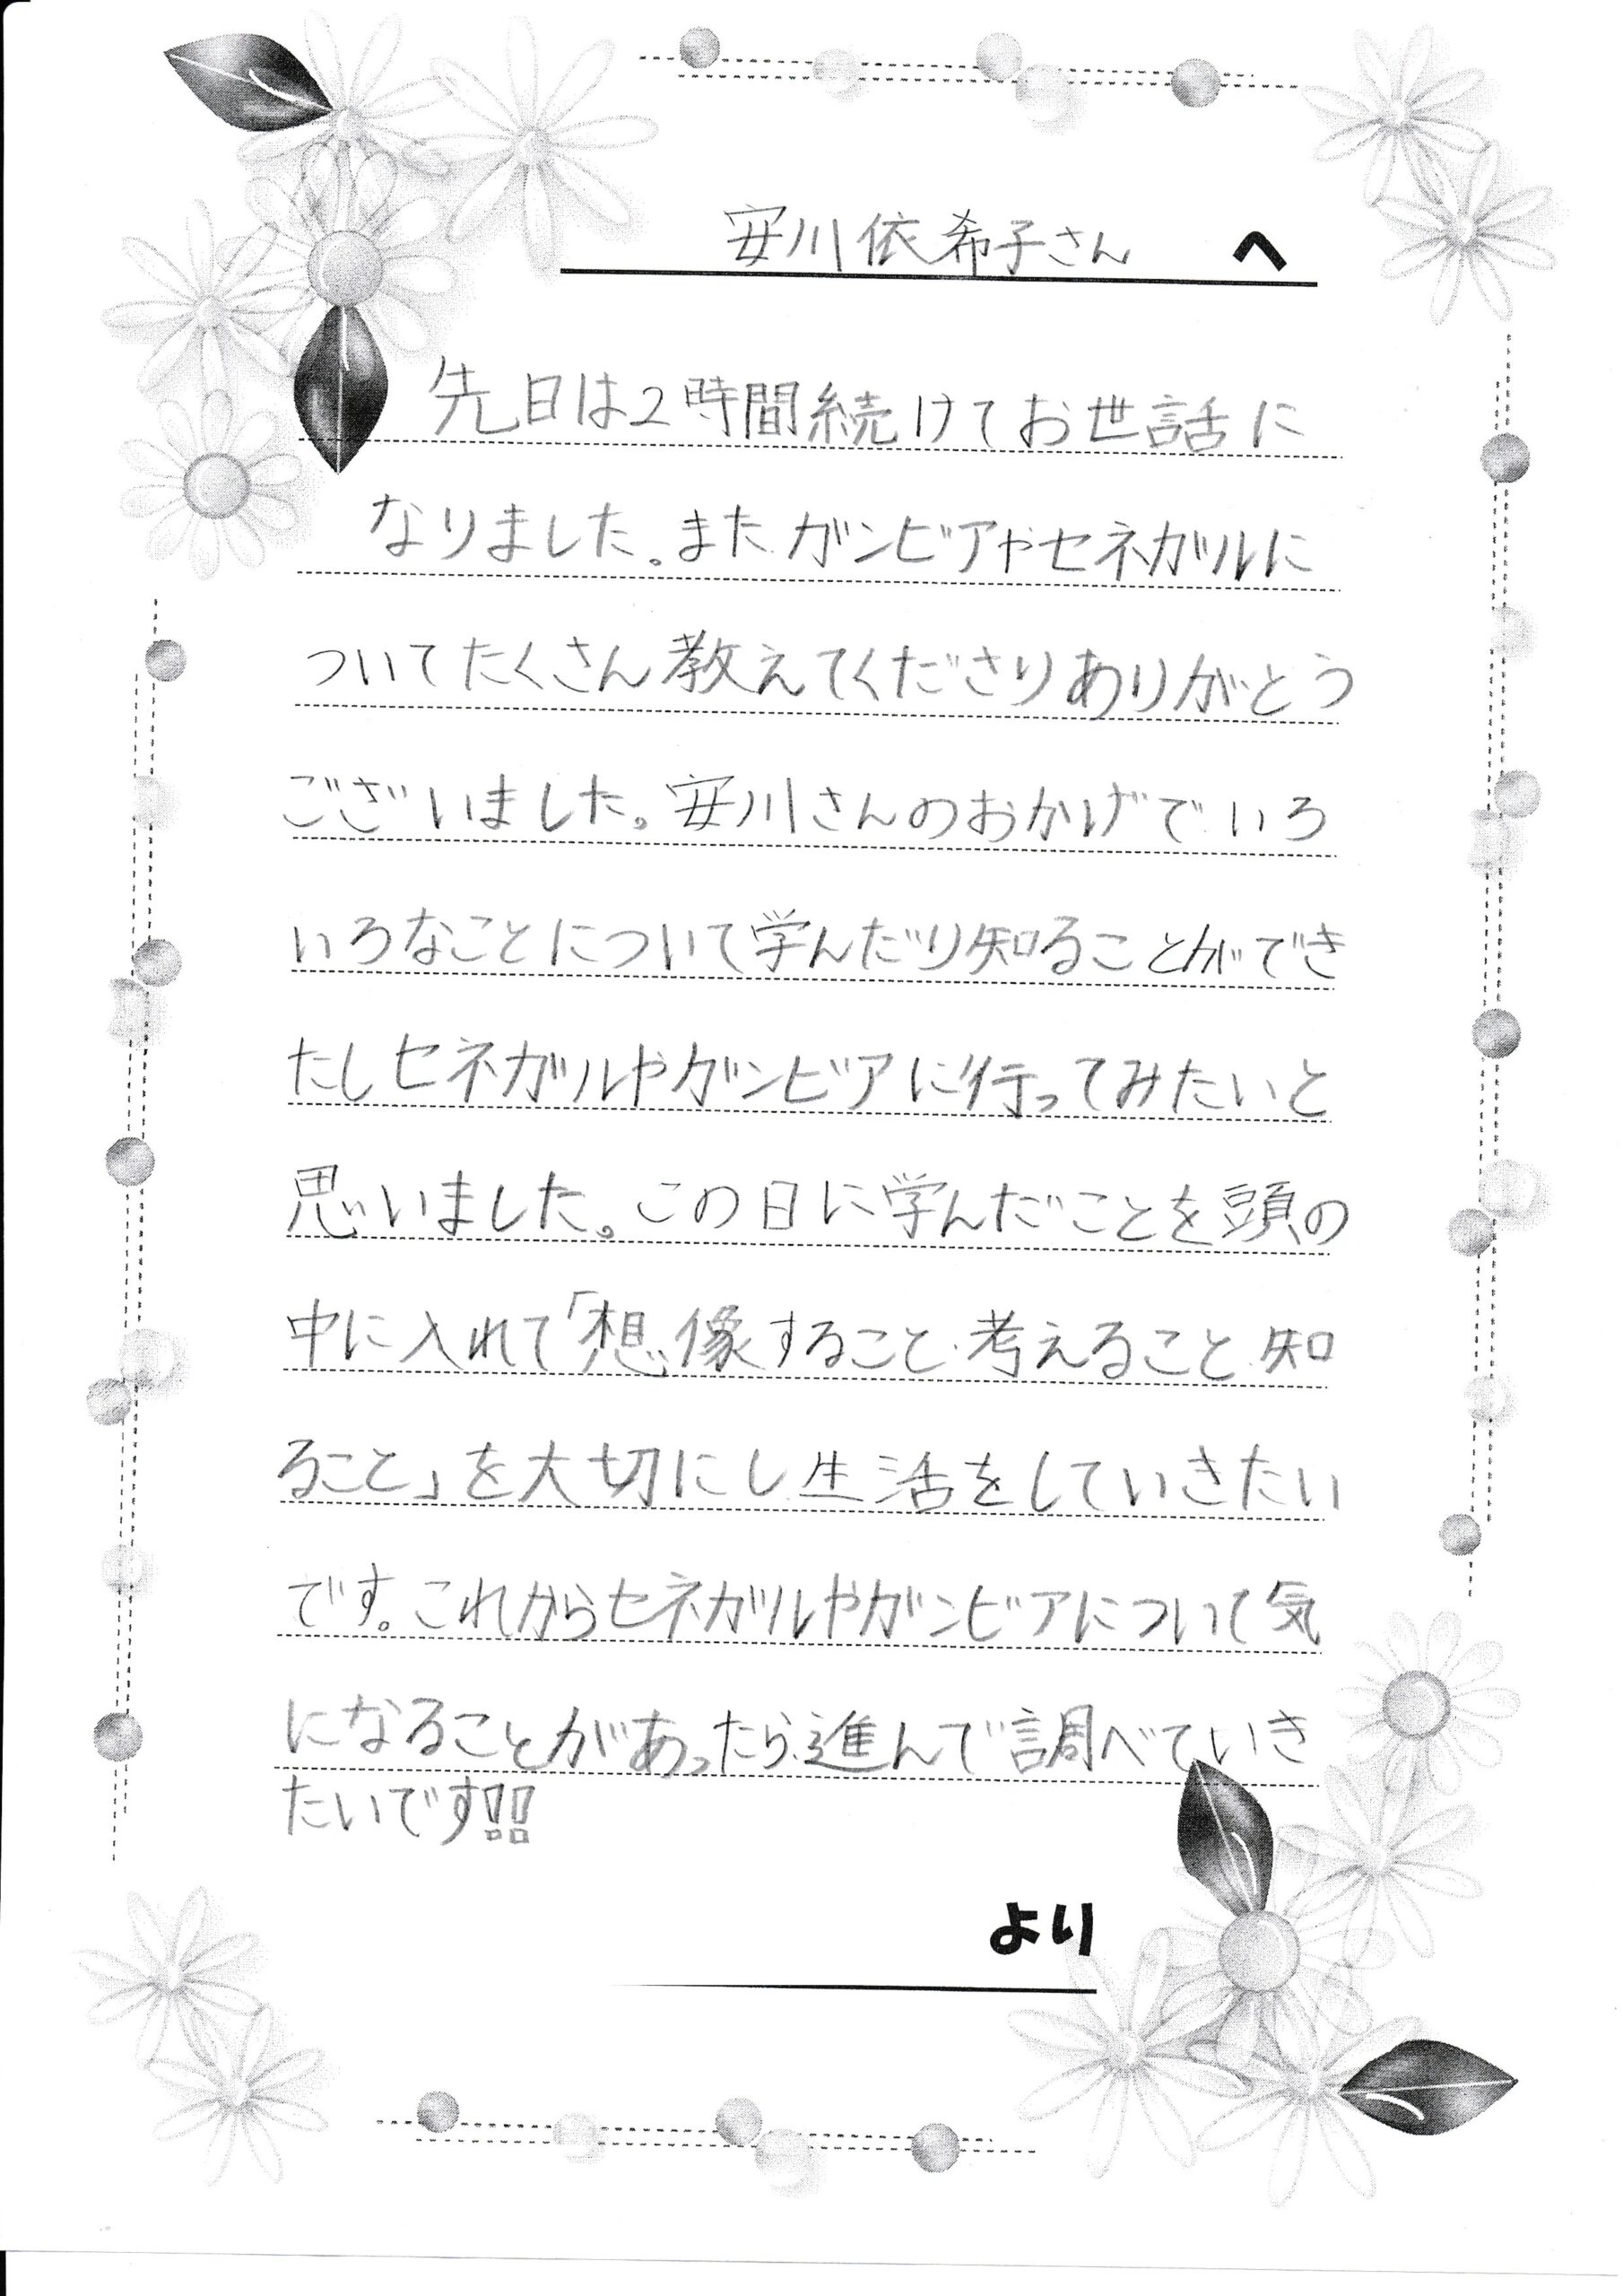 安川依希子さん へ
先日は2時間続けてお世話に
なりました。また、ガンビアやセネガルに
ついてたくさん教えてくださりありがとう
ございました。安川さんのおかげで、いろ
いろなことについて学んだり知ることができ
たしセネガルやガンビアに行ってみたいと
思いました。この日に学んだことを頭の
中に入れて「想像すること、考えること、知
ること」を大切にし、生活をしていきたい
です。これからセネガルやガンビアについて気
になることがあったら、進んで調べていき
たいです!!
より